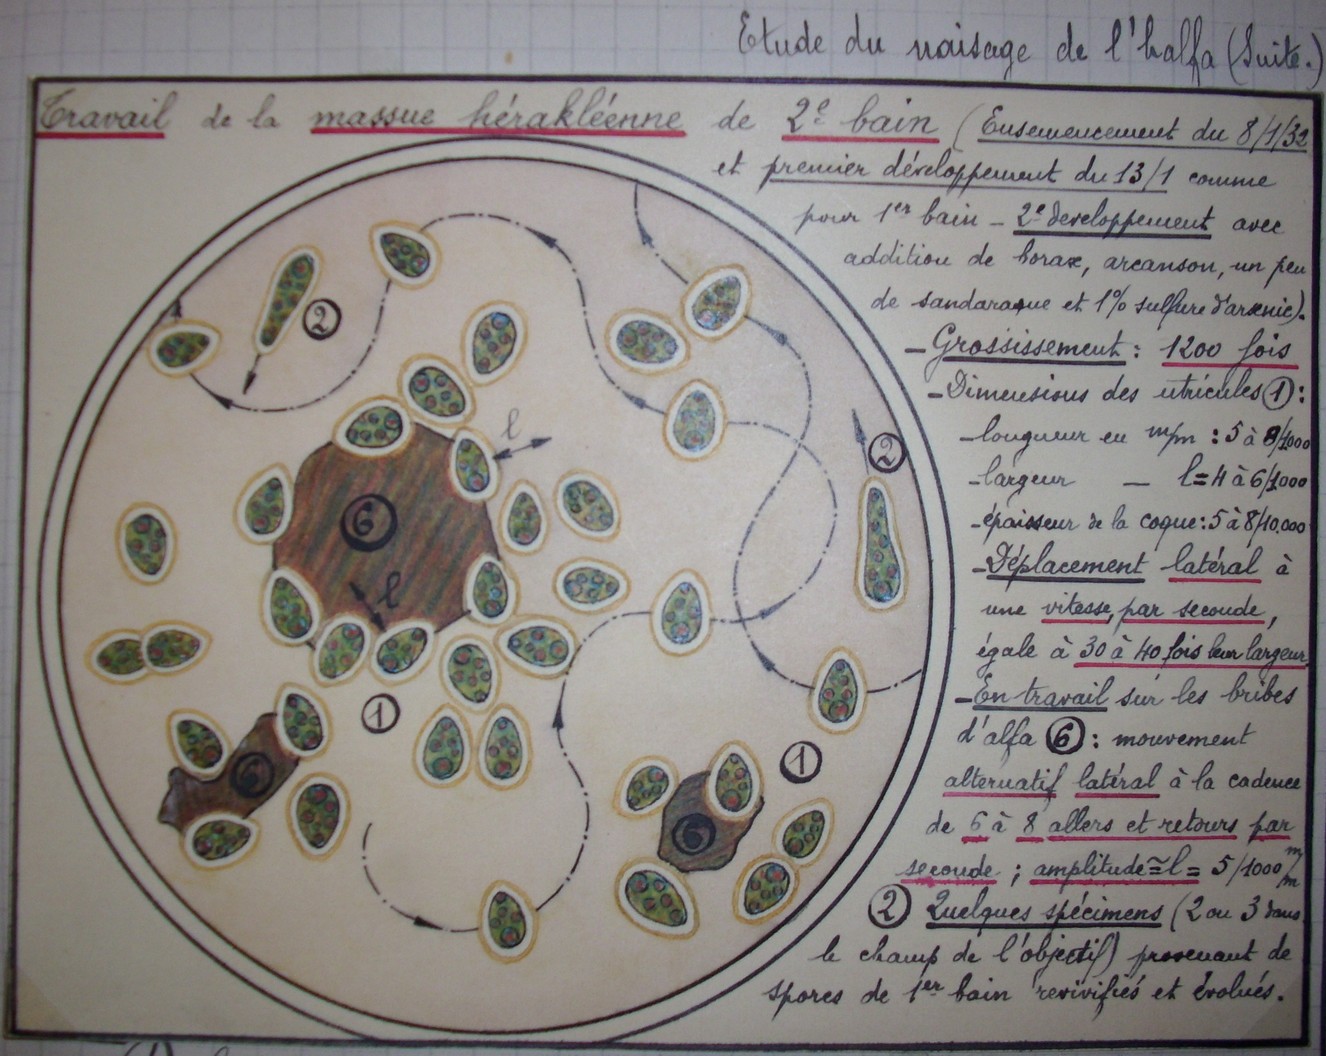 Etude du naisage de l'halfa (Suite.)
Travail de la massue hérakléenne de 2e bain (Ensemencement du 8/1/32
et premier développement du 13/1 comme
pour 1er bain - 2e developpement avec
addition de borax, arcanson, un peu
de sandaraque et 1% sulfure d'arsenic).
- Grossissement : 1200 fois
- Dimensions des utricules ① :
- longueur en m/m : 5 à 8/1000
- largeur — l = 4 à 6/1000
- épaisseur de la coque : 5 à 8/10.000
- Déplacement latéral à
une vitesse, par seconde,
égale à 30 à 40 fois leur largeur
- En travail sur les bribes
d'alfa ⑥ : mouvement
alternatif latéral à la cadence
de 6 à 8 allers et retours par
seconde ; amplitude ≃ l = 5/1000 m/m
② Quelques spécimens (2 ou 3 dans
le champ de l'objectif) provenant de
spores de 1er bain revivifiés et évolués.
②
l
②
⑥
l
①
⑥
①
⑥